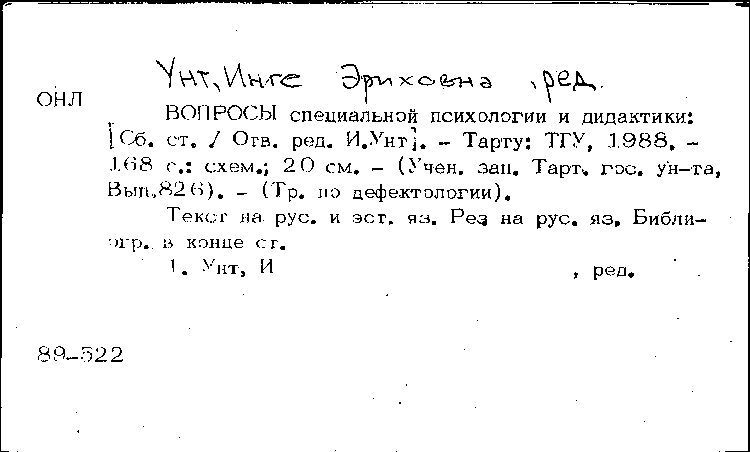 Унт, Инге Эриховна, ред.
ОНЛ
ВОПРОСЫ специальной психологии и дидактики:
[Сб. ст. / Отв. ред. И.Унт]. – Тарту: ТГУ, 1988. –
168 с.: схем.; 20 см. – (Учен. зап. Тарт. гос. ун-та,
Вып.826). – (Тр. по дефектологии).
Текст на рус. и эст. яз. Рез на рус. яз. Библи-
огр. в конце ст.
1. Унт, И , ред.
89-522